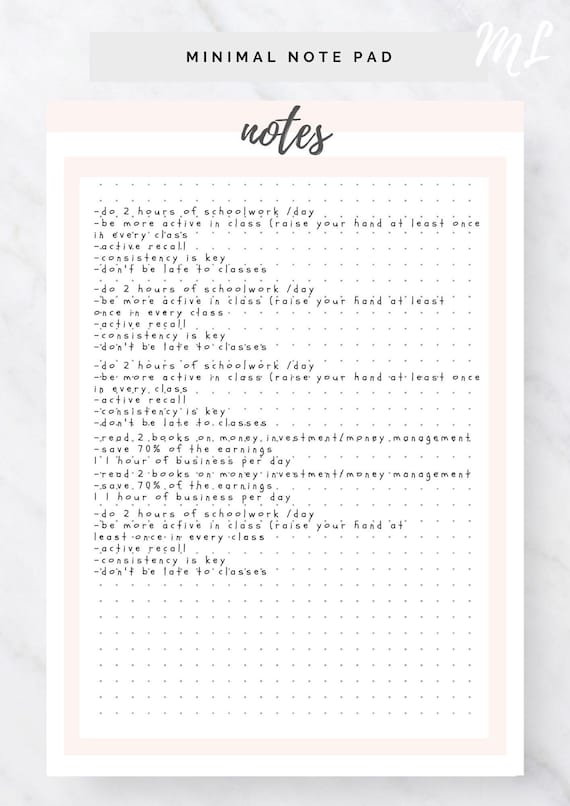 ML
MINIMAL NOTE PAD
notes
-do 2 hours of schoolwork /day
-be more active in class (raise your hand at least once
in every class
-active recall
-consistency is key
-don't be late to classes
-do 2 hours of schoolwork /day
-be more active in class (raise your hand at least
once in every class
-active recall
-consistency is key
-don't be late to classes
-do 2 hours of schoolwork /day
-be more active in class (raise your hand at least once
in every class
-active recall
-consistency is key
-don't be late to classes
-read 2 books on money investment/money management
-save 70% of the earnings
1 1 hour of business per day
-read 2 books on money investment/money management
-save 70% of the earnings
1 1 hour of business per day
-do 2 hours of schoolwork /day
-be more active in class (raise your hand at
least once in every class
-active recall
-consistency is key
-don't be late to classes